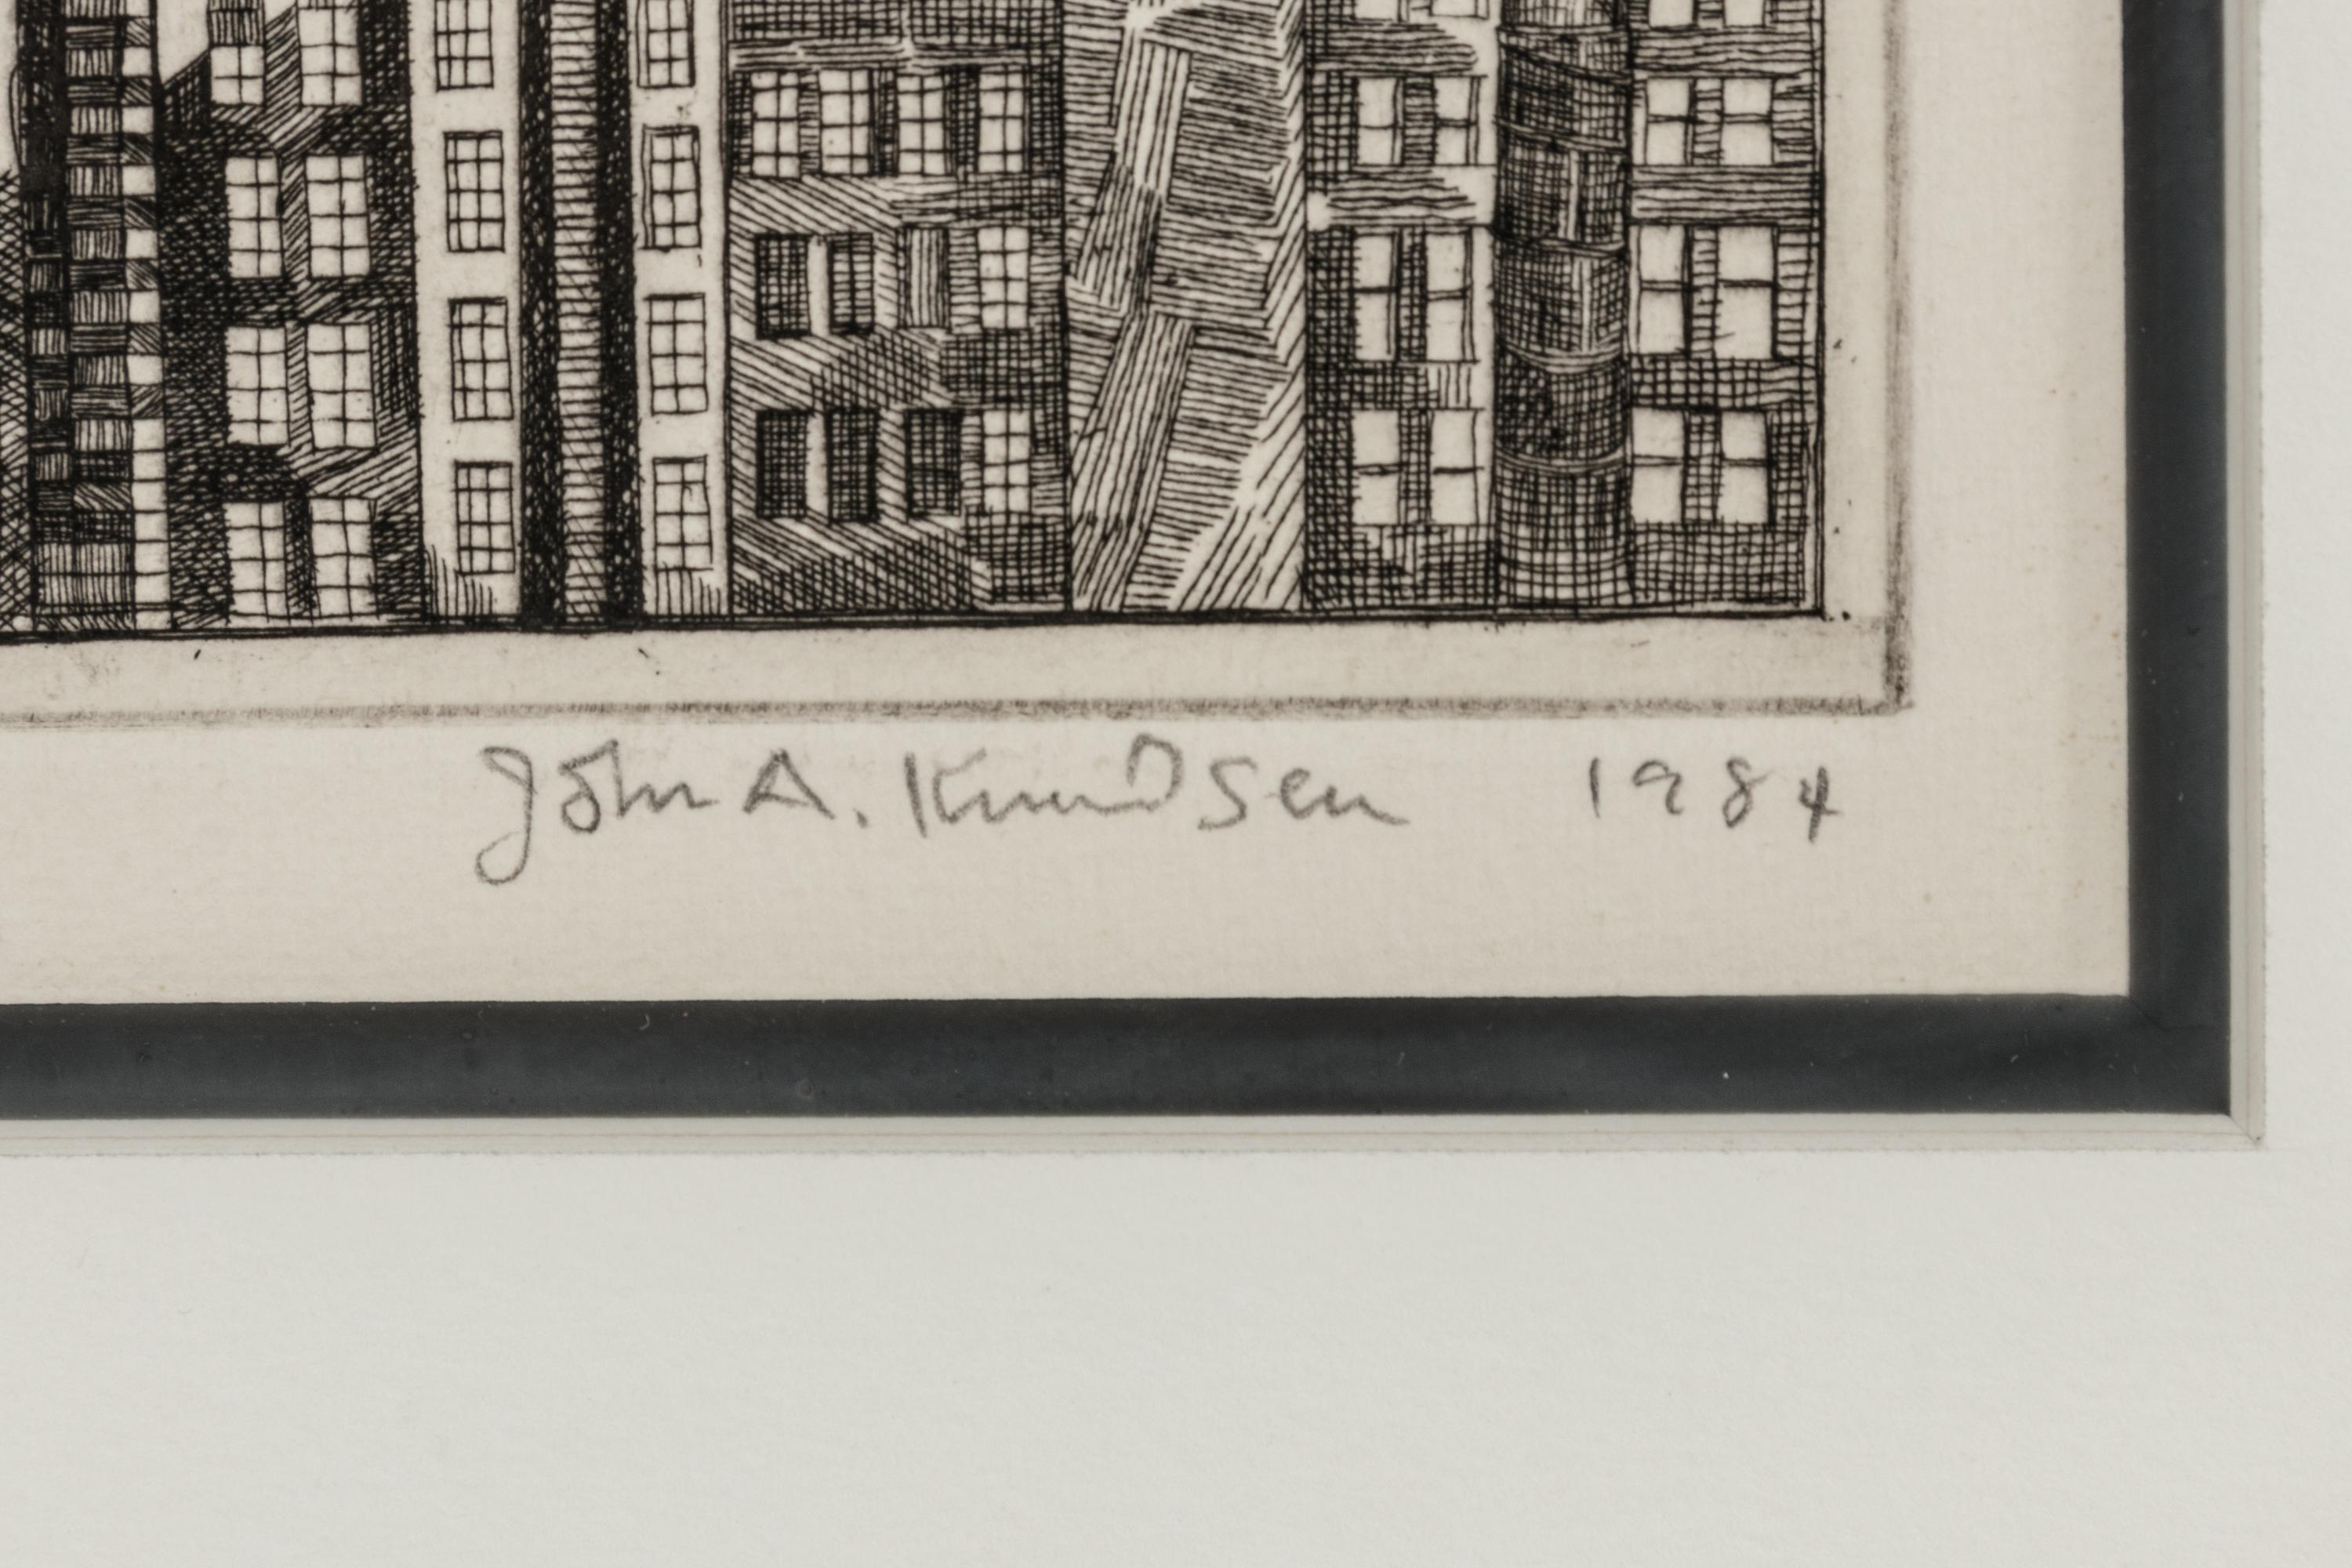 John A. Knudsen 1984